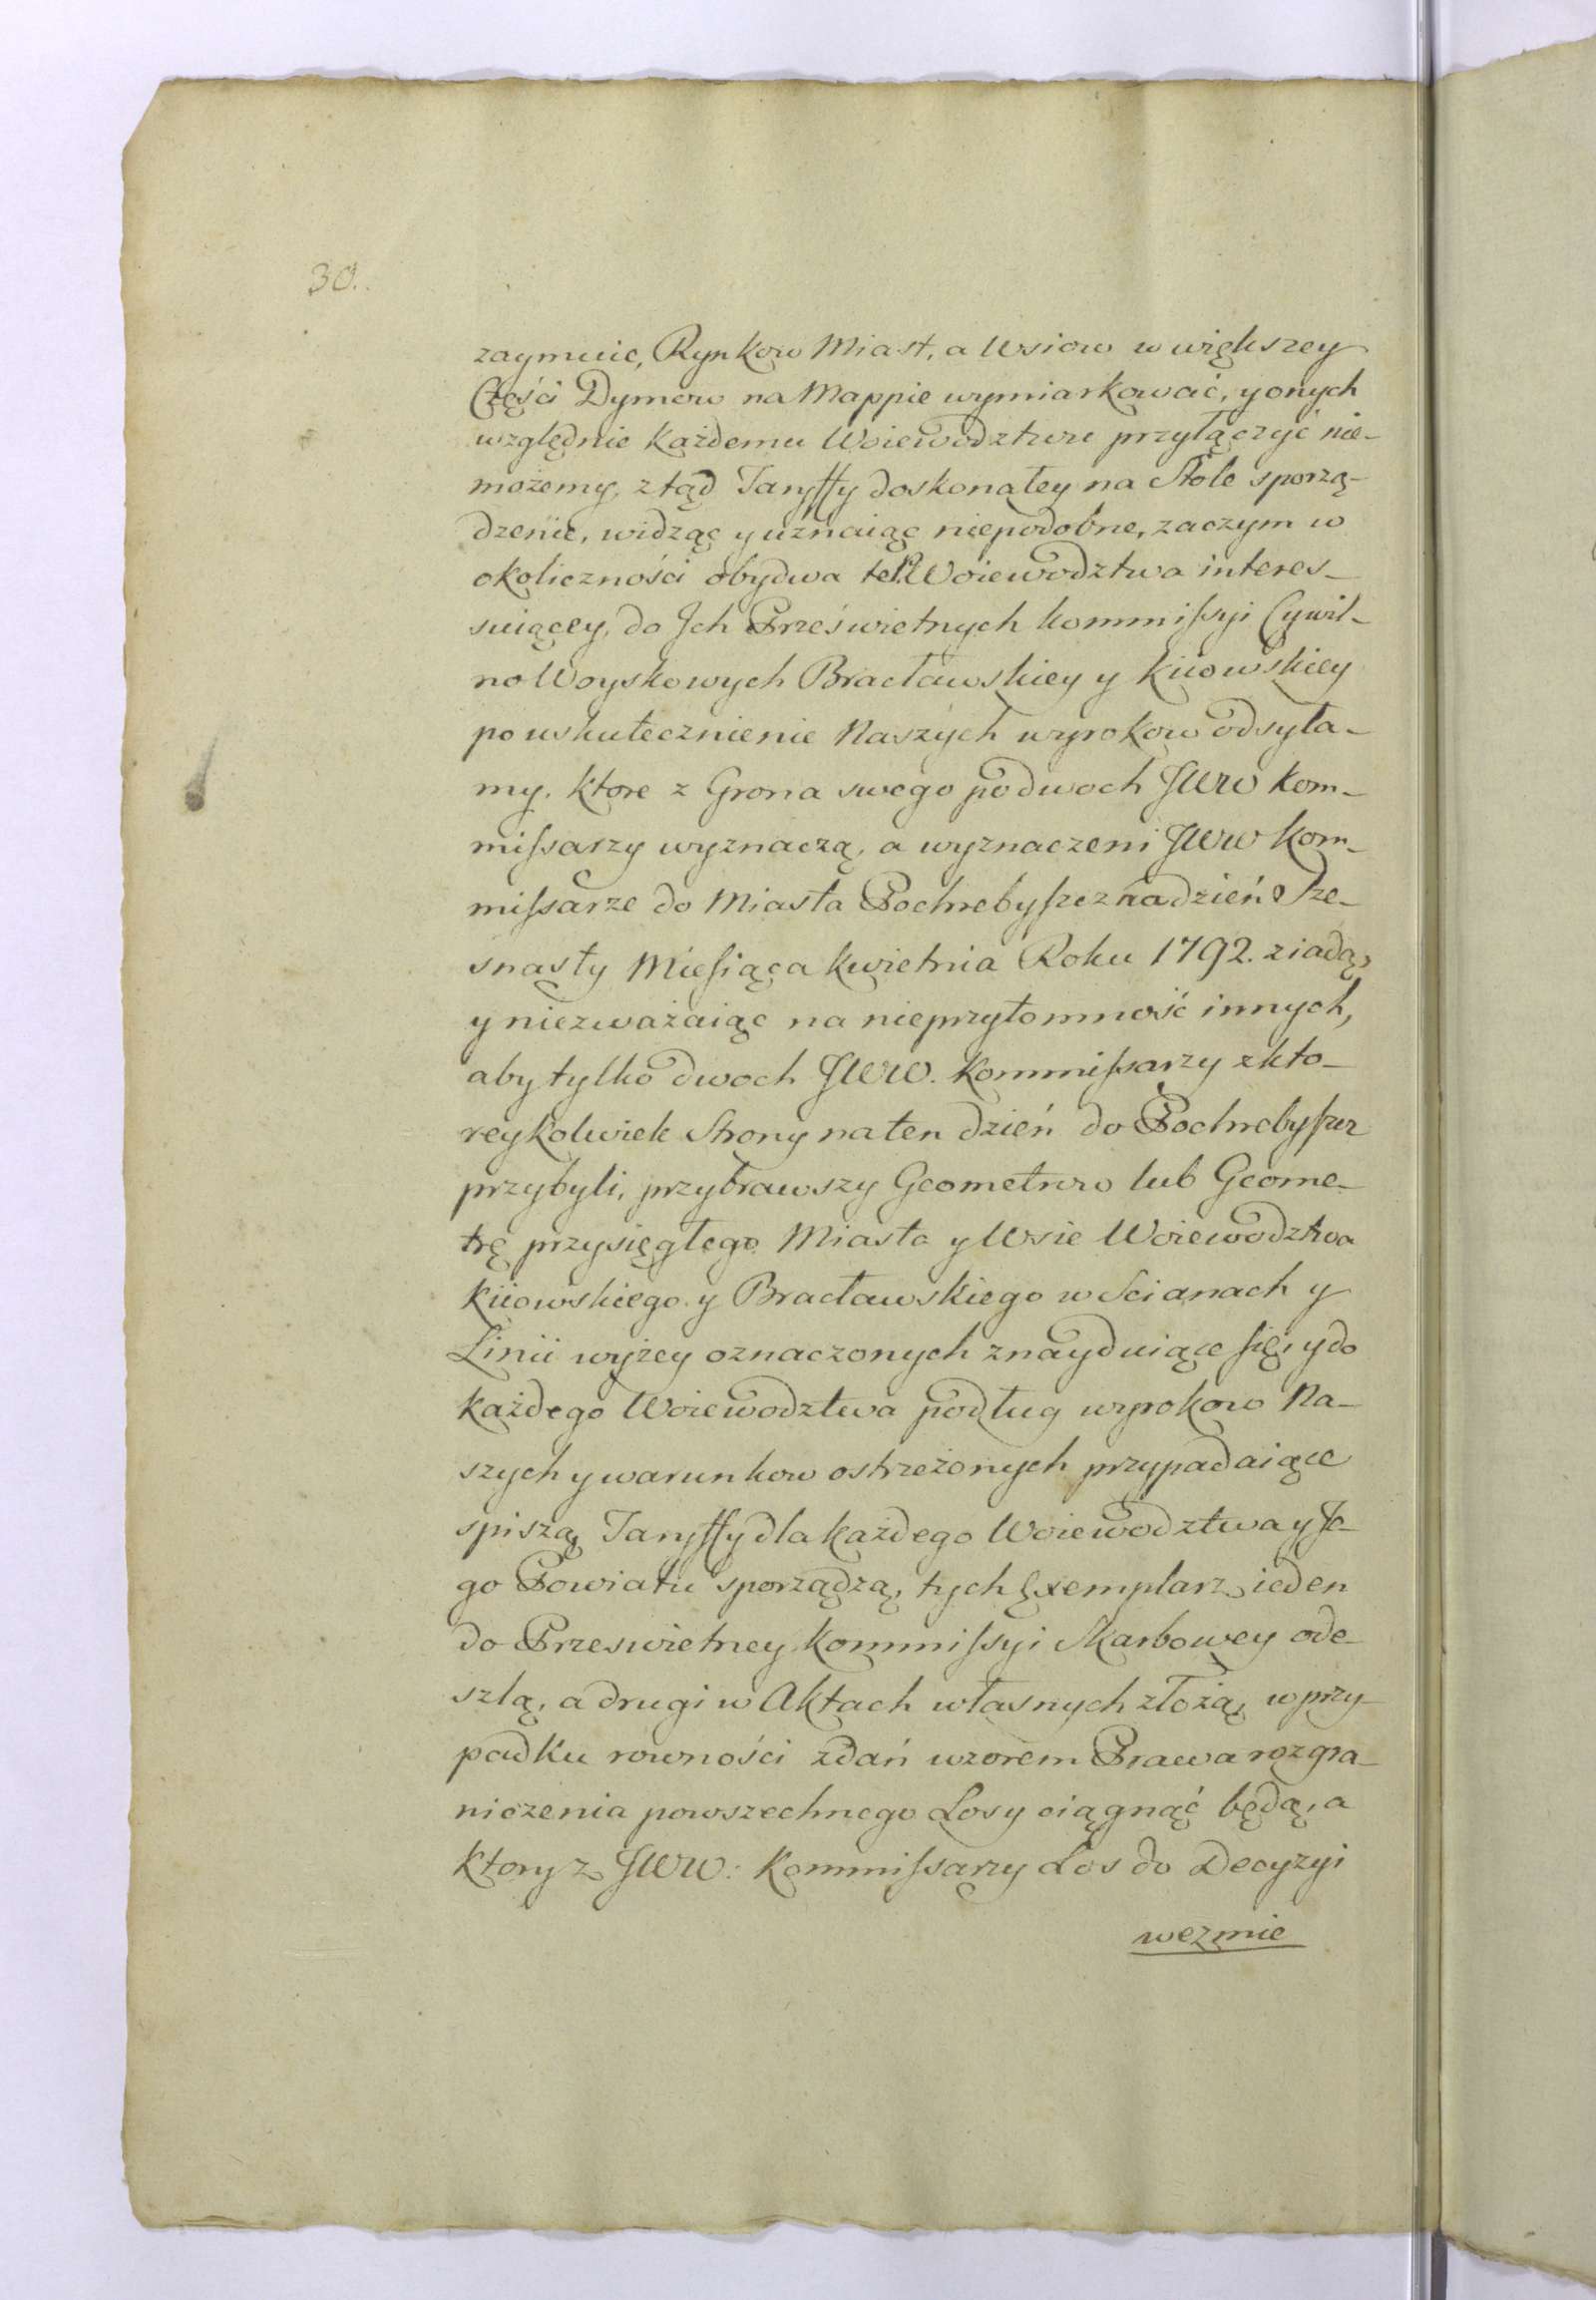 30.
zaymuie, Rynkow Miast, a Wsiow w większey
Części Dymow na Mappie wymiarkować, y onych
względnie każdemu Woiewodztwu przyłączyć nie-
możemy, ztąd Taryffy doskonałey na Stole sporzą-
dzenie, widząc y uznaiąc niepodobne, zaczym w
okoliczności obydwa te Woiewodztwa interes-
suiącey, do Ich Prześwietnych Kommissyi Cywil-
no Woyskowych Bracławskiey y Kiiowskiey
po uskutecznienie Naszych wyrokow odsyła-
my. Ktore z Grona swego po dwoch JWW Kom-
missarzy wyznaczą, a wyznaczeni JWW Kom-
missarze do Miasta Pohrebyszcz na dzień Sze-
snasty Miesiąca Kwietnia Roku 1792. ziadą,
y niezważaiąc na nieprzytomność innych,
aby tylko dwoch JWW. Kommissarzy z kto-
reykolwiek Strony na ten dzień do Pohrebyszcz
przybyli, przybrawszy Geometrow lub Geome-
trę przysięgłego Miasta y Wsie Woiewodztwa
Kiiowskiego y Bracławskiego w Scianach y
Linii wyżey oznaczonych znayduiące się, y do
każdego Woiewodztwa podług wyrokow Na-
szych y warunkow ostrzeżonych przypadaiące
spiszą, Taryffy dla każdego Woiewodztwa y Je-
go Powiatu sporządzą, tych Exemplarz ieden
do Przeswietney Kommissyi Skarbowey ode-
szlą, a drugi w Aktach własnych złożą, w przy-
padku rowności zdań wzorem Prawa rozgra-
niczenia powszechnego Losy ciągnąć będą, a
Ktory z JWW: Kommissarzy Los do Decyzyi
wezmie